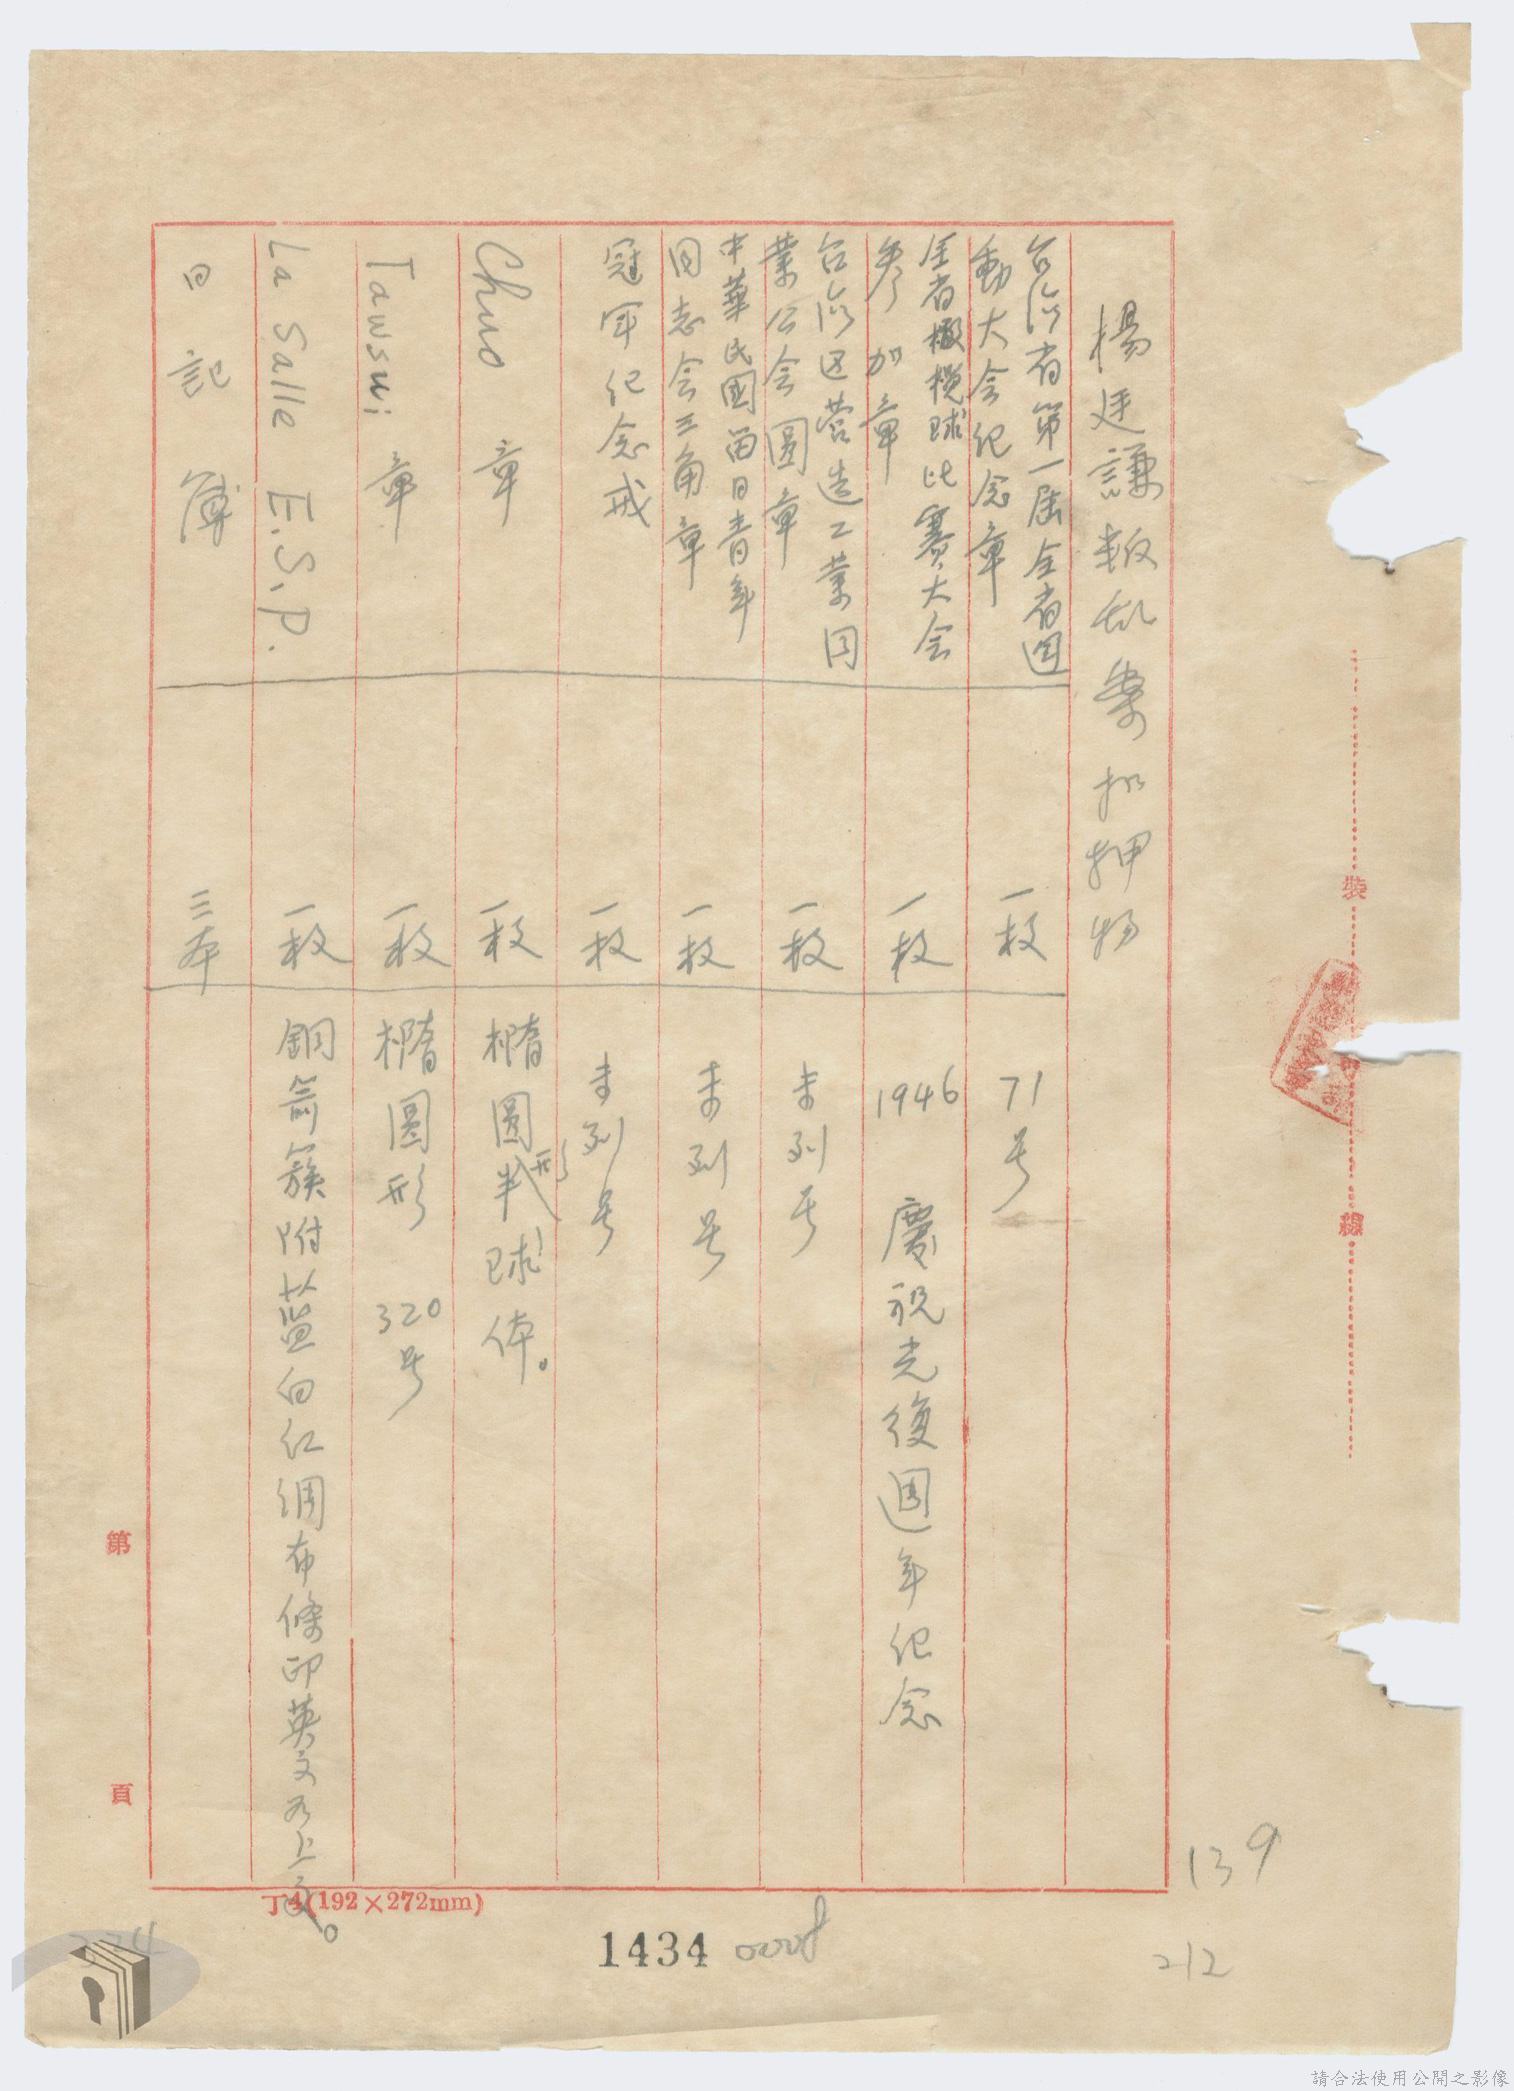 楊廷謙叛乱案扣押物
台湾省第一届全省運
動大会纪念章
一枚
71号
全省橄欖球比赛大会
参加章
一枚
1946 慶祝光復週年纪念
台湾区营造工業同
業公会圓章
一枚
未列号
中華民國留日青年
同志会三角章
一枚
未列号
冠军纪念戒
一枚
未列号
Chuo 章
一枚
橢圓形半球体。
Tawsui 章
一枚
橢圓形 320号
La Salle E.S.P.
一枚
銅箭簇附蓝白红绸布條印英文如上文。
日記簿
三本
裝
線
第
頁
丁4(192×272mm)
1434
0008
139
212
224
請合法使用公開之影像